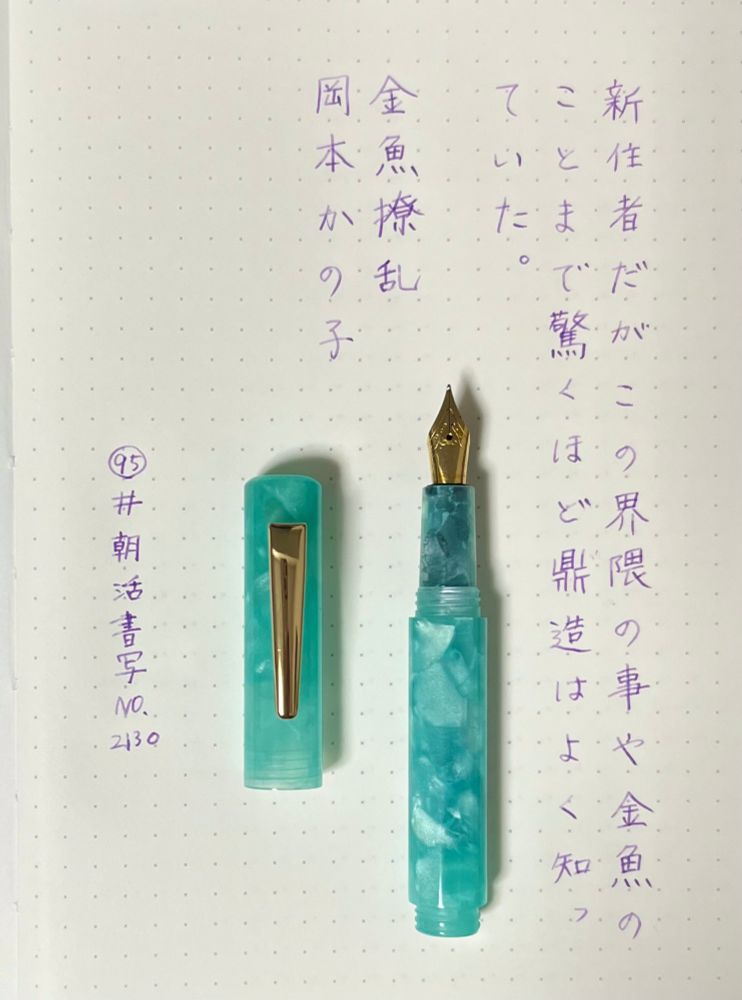 新住者だがこの界隈の事や金魚の
ことまで驚くほど鼎造はよく知っ
ていた。
金魚撩乱
岡本かの子
㊺井朝活書写NO.2130